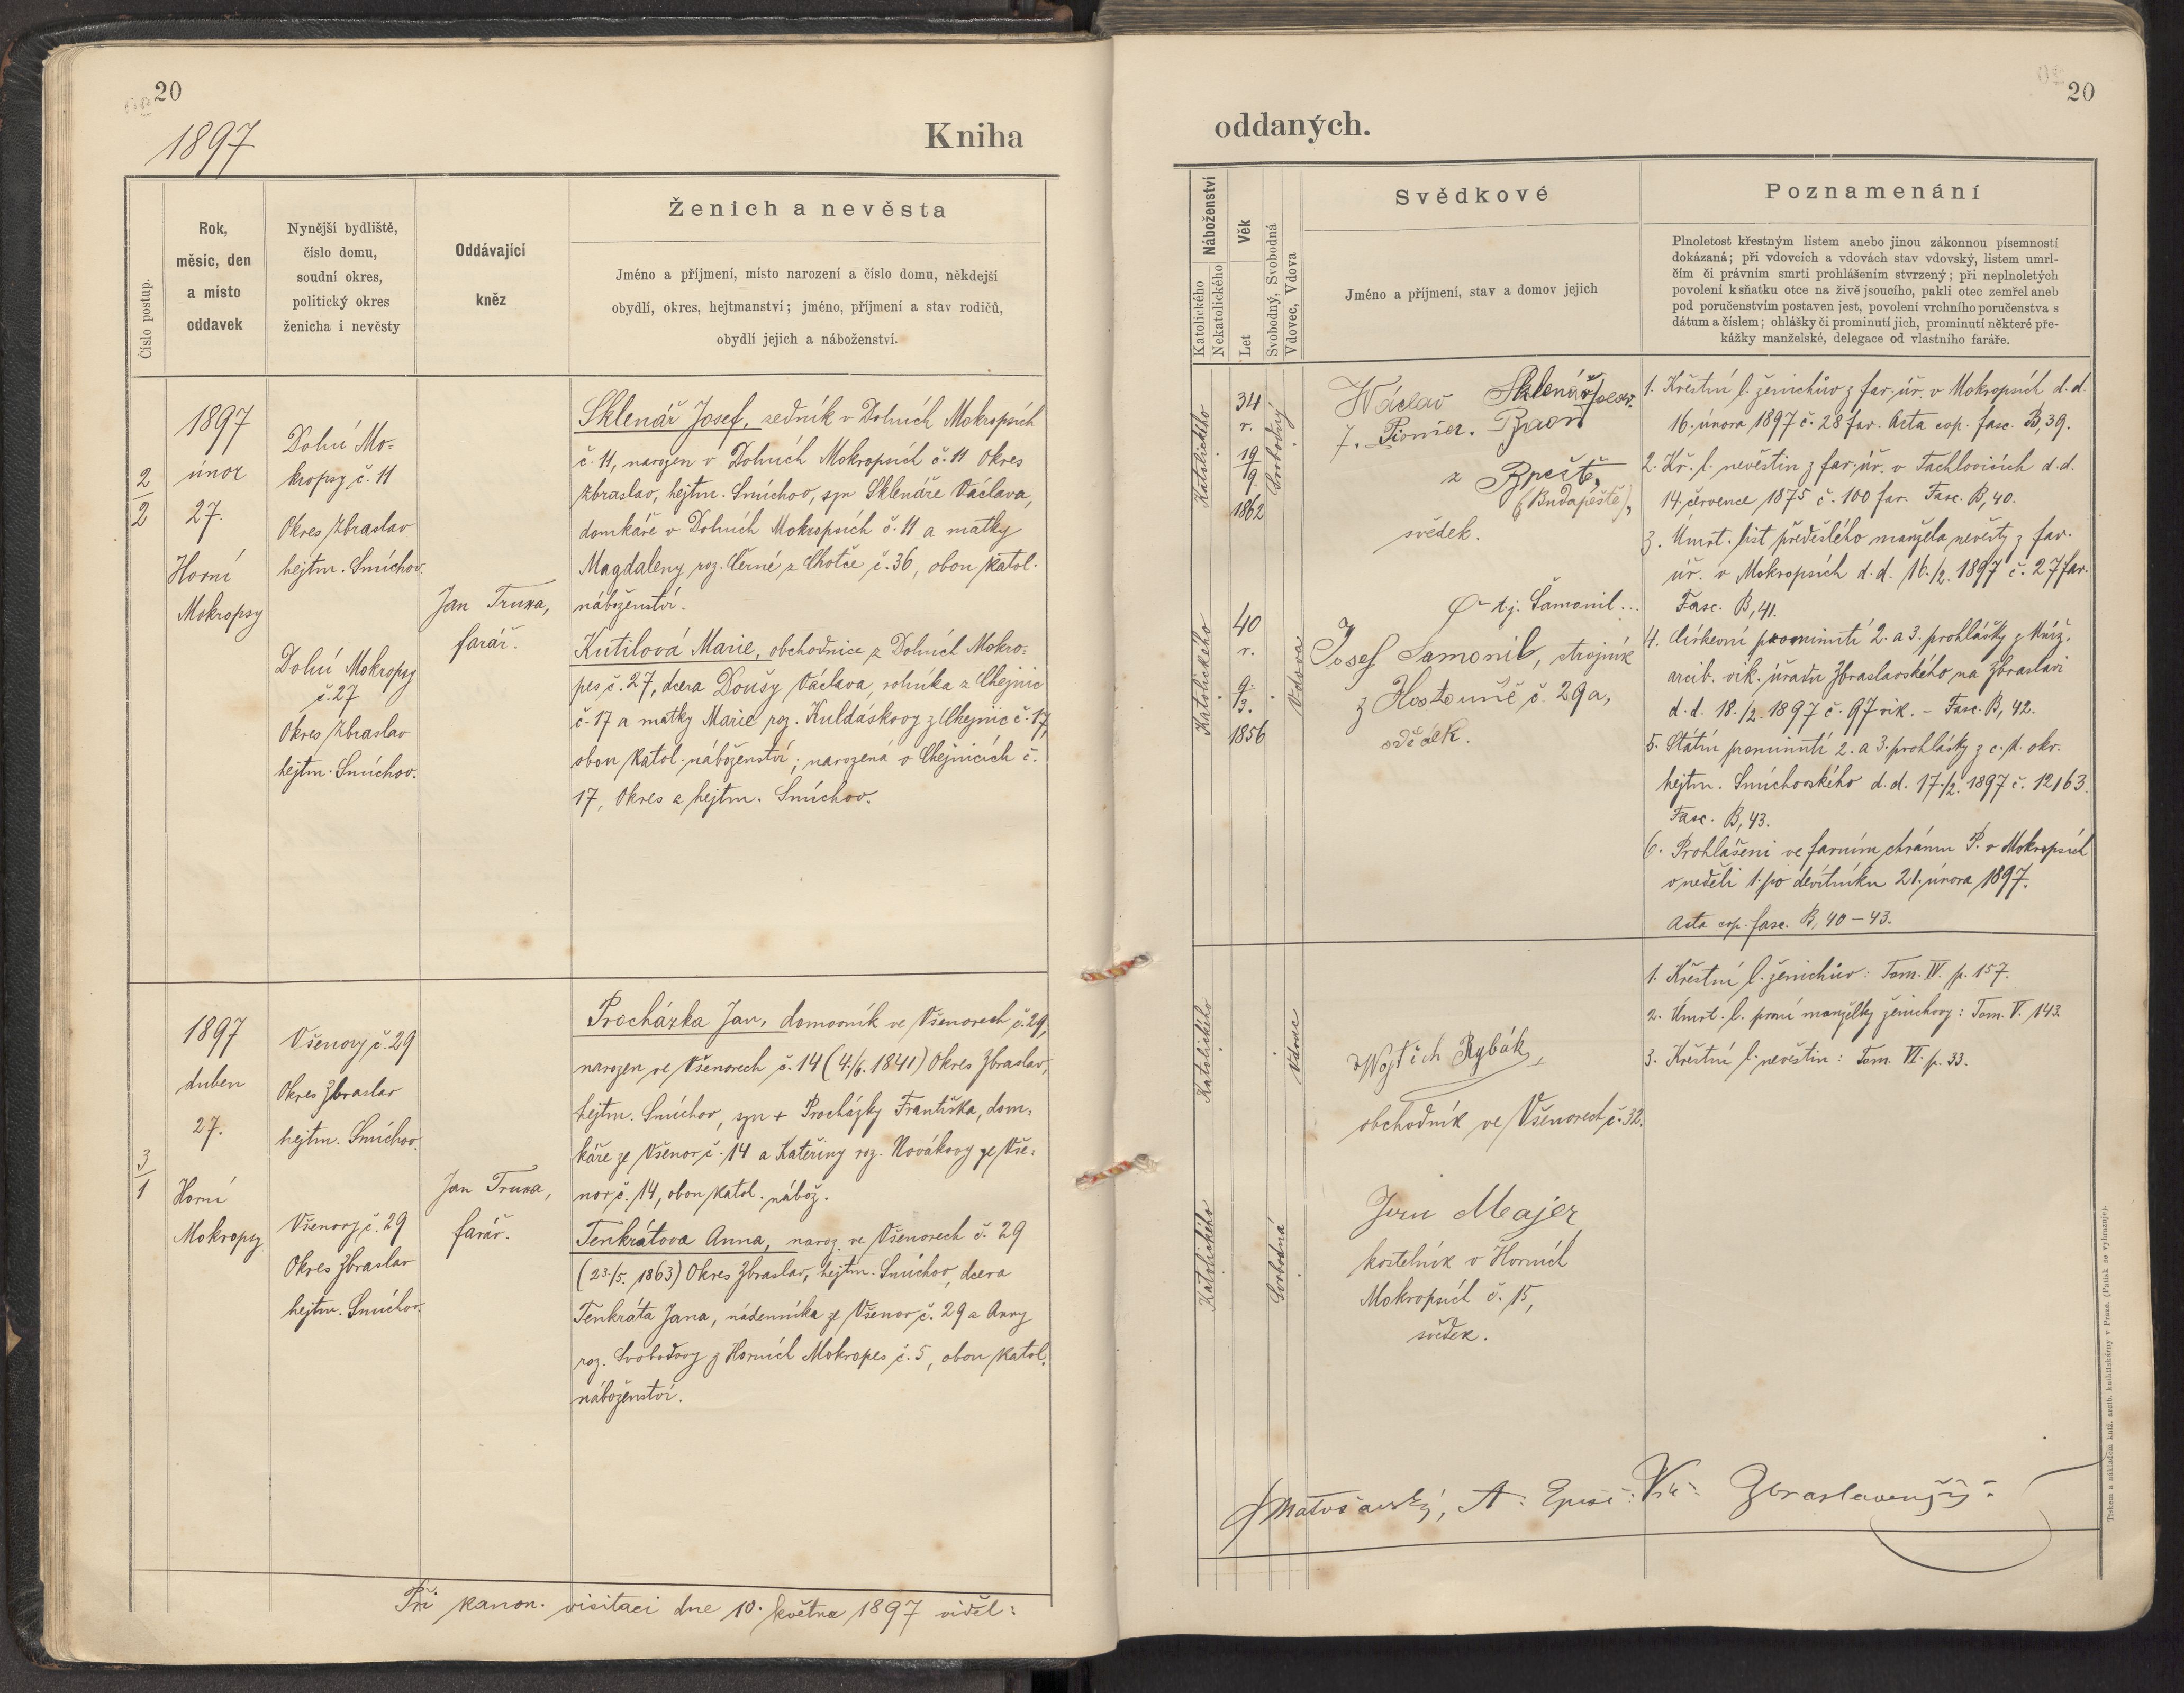 20
1897
Kniha
Číslo postup.
Rok,
měsíc, den
a místo
oddavek
Nynější bydliště,
číslo domu,
soudní okres,
politický okres
ženicha i nevěsty
Oddávající
kněz
Ženich a nevěsta
Jméno a příjmení, místo narození a číslo domu, někdejší
obydlí, okres, hejtmanství; jméno, příjmení a stav rodičů,
obydlí jejich a náboženství.
2
2
1897
únor
27.
Horní
Mokropsy
Dolní Mo-
kropsy č. 11
Okres Zbraslav
hejtm. Smíchov.
Dolní Mokropsy
č. 27
Okres Zbraslav
hejtm. Smíchov.
Jan Truxa,
farář.
Sklenář Josef, sedník v Dolních Mokropsích
č. 11, narozen v Dolních Mokropsích č. 11 Okres
Zbraslav, hejtm. Smíchov, syn Sklenáře Václava,
domkáře v Dolních Mokropsích č. 11 a matky
Magdaleny roz. Černé z Chotče č. 36, obou katol.
náboženství.
Kutilová Marie, obchodnice z Dolních Mokro-
pes č. 27, dcera Doušy Václava, rolníka z Chejnic
č. 17 a matky Marie roz. Kuldáskovy z Chejnic č. 17,
obou katol. náboženství; narozená v Chejnicích č.
17, Okres a hejtm. Smíchov.
3
1
1897
duben
27.
Horní
Mokropsy.
Všenory č. 29
Okres Zbraslav
hejtm. Smíchov.
Všenory č. 29
Okres Zbraslav
hejtm. Smíchov.
Jan Truxa,
farář.
Procházka Jan, domovník ve Všenorech č. 29,
narozen ve Všenorech č. 14 (4./6. 1841) Okres Zbraslav,
hejtm. Smíchov, syn + Procházky Františka, dom-
káře ze Všenor č. 14 a Kateřiny roz. Novákovy ze Vše-
nor č. 14, obou katol. nábož.
Tenkrátova Anna, naroz. ve Všenorech č. 29
(23./5. 1863) Okres Zbraslav, hejtm. Smíchov, dcera
Tenkráta Jana, nádenníka ze Všenor č. 29 a Anny
roz. Svobodovy z Horních Mokropes č. 5, obou katol.
náboženství.
Při kanon. visitaci dne 10. května 1897 viděl:
20
oddaných.
Náboženství
Katolického
Nekatolického
Věk
Let
Svobodný, Svobodná
Vdovec, Vdova
Svědkové
Jméno a příjmení, stav a domov jejich
Poznamenání
Plnoletost křestným listem anebo jinou zákonnou písemností
dokázaná; při vdovcích a vdovách stav vdovský, listem umrl-
čím či právním smrti prohlášením stvrzený; při neplnoletých
povolení k sňatku otce na živě jsoucího, pakli otec zemřel aneb
pod poručenstvím postaven jest, povolení vrchního poručenstva s
dátum a číslem; ohlášky či prominutí jich, prominutí některé pře-
kážky manželské, delegace od vlastního faráře.
Katolického
34
r.
19
9.
1862
Svobodný
Václav Sklenář
7. Pionier.
z Bpeště,
(Budapeště),
svědek.
Katolického
40
r.
9.
3.
1856
Vdova
t.j. Šamonil
Josef Samonil, strojník
z Hostouně č. 29a,
svědek.
1. Křestní l. ženichův z far. úř. v Mokropsích d. d.
16. února 1897 č. 28 far. Acta cop. fasc. B, 39.
2. Kř. l. nevěstin z far. úř. v Tachlovicích d. d.
14. července 1875 č. 100 far. Fasc. B, 40.
3. Úmrt. list předešlého manžela nevěsty z far.
úř. v Mokropsích d. d. 16./2. 1897 č. 27 far.
Fasc. B, 41.
4. Církevní prominutí 2. a 3. prohlášky z
arcib. vik. úřadu Zbraslavského na Zbraslavi
d. d. 18./2. 1897 č. 97 vik. - Fasc. B, 42.
5. Státní prominutí 2. a 3. prohlášky z c. k. okr.
hejtm. Smíchovského d. d. 17./2. 1897 č. 12163.
Fasc. B, 43.
6. Prohlášeni ve farním chrámu P. v Mokropsích
v neděli 1. po devítníku 21. února 1897.
Acta cop. fasc. B, 40 - 43.
Katolického
Vdovec
Wojtěch Rybák,
obchodník ve Všenorech č. 32.
Katolického
Svobodná
Jan Majer,
kostelník v Horních
Mokropsích č. 15,
svědek.
1. Křestní l. ženichův: Tom. IV. p. 157.
2. Úmrt. l. první manželky ženichovy: Tom. V. 143.
3. Křestní l. nevěstin: Tom. VI. p. 33.
Zbraslavenský
Tiskem a nákladem kníž. arcib. knihtiskárny v Praze. (Patisk se vyhrazuje).